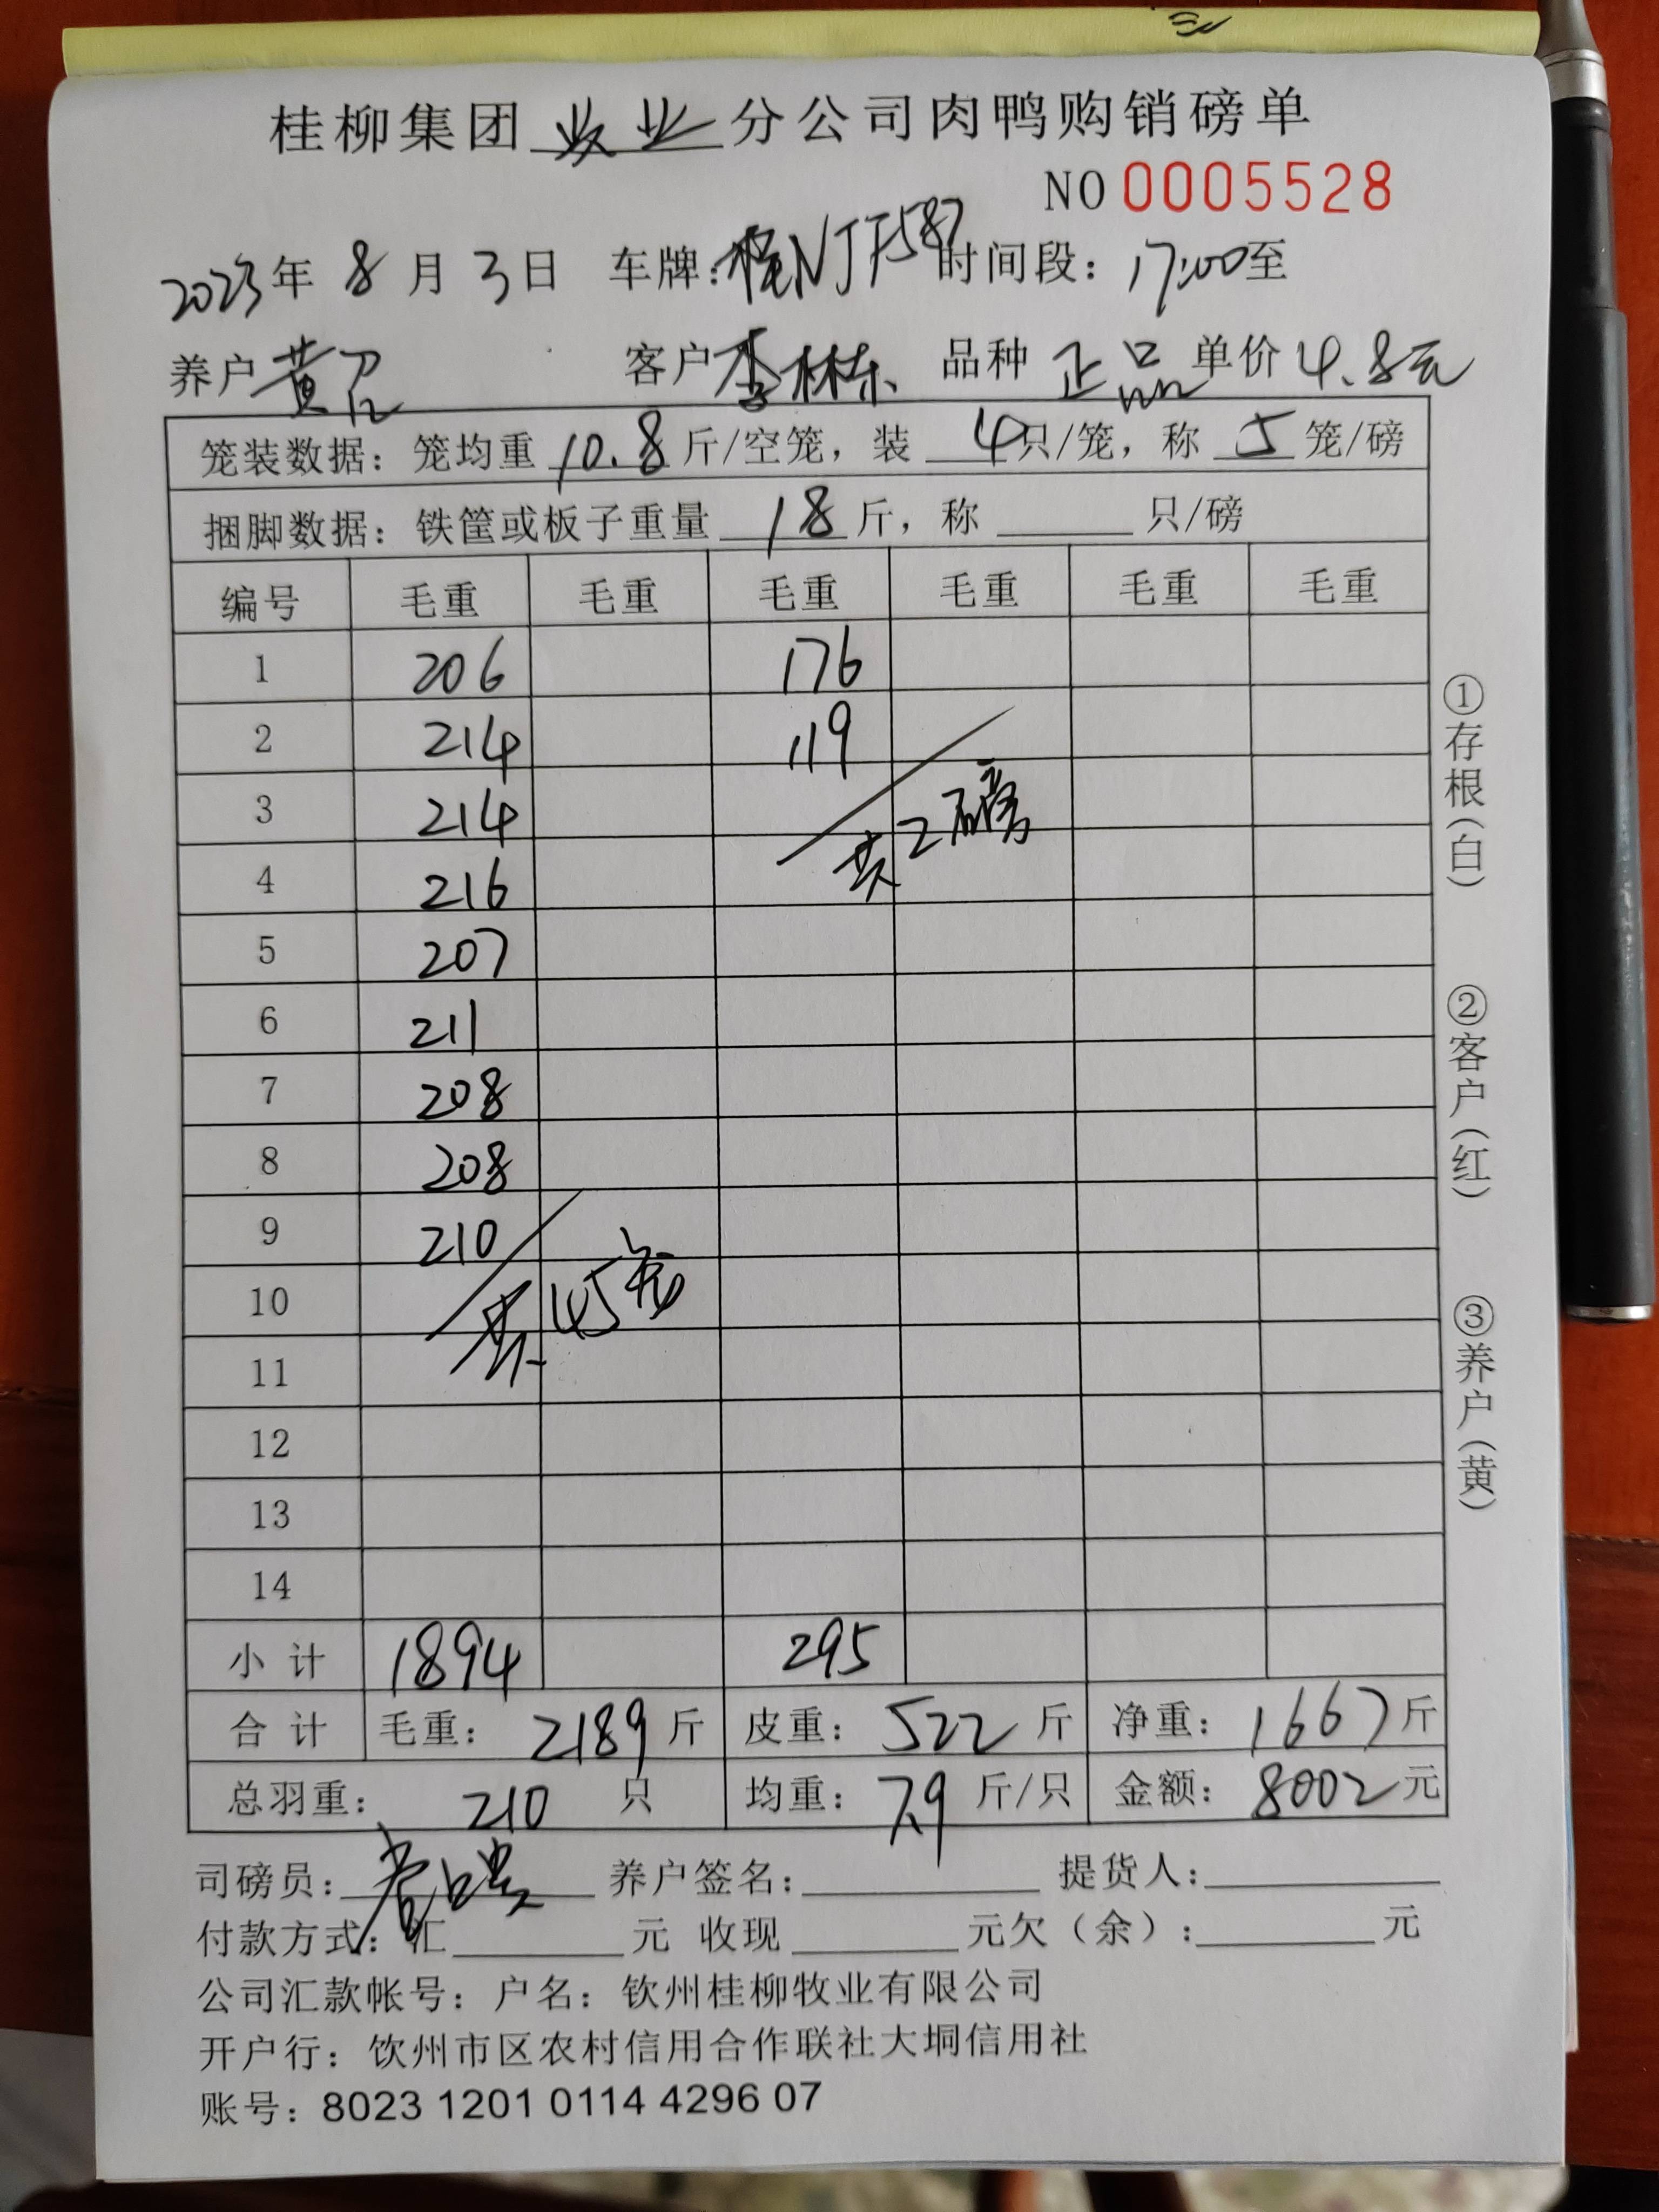 桂柳集团牧业分公司肉鸭购销磅单
NO 0005528
2023年 8 月 3 日 车牌：桂NJF587 时间段：17:00至
养户 黄召 客户 李林东 品种 正品 单价 4.8元
笼装数据：笼均重 10.8 斤/空笼，装 4 只/笼，称 5 笼/磅
捆脚数据：铁筐或板子重量 18 斤，称 只/磅
编号 毛重 毛重 毛重 毛重 毛重 毛重
1 206 176
2 214 119
3 214 共2磅
4 216
5 207
6 211
7 208
8 208
9 210
10 共45笼
11
12
13
14
小计 1894 295
合计 毛重：2189 斤 皮重：522 斤 净重：1667 斤
总羽重：210 只 均重：7.9 斤/只 金额：8002 元
司磅员： 养户签名： 提货人：
付款方式：汇 元 收现 元欠（余）： 元
公司汇款帐号：户名：钦州桂柳牧业有限公司
开户行：饮州市区农村信用合作联社大垌信用社
账号：8023 1201 0114 4296 07
①存根（白）
②客户（红）
③养户（黄）